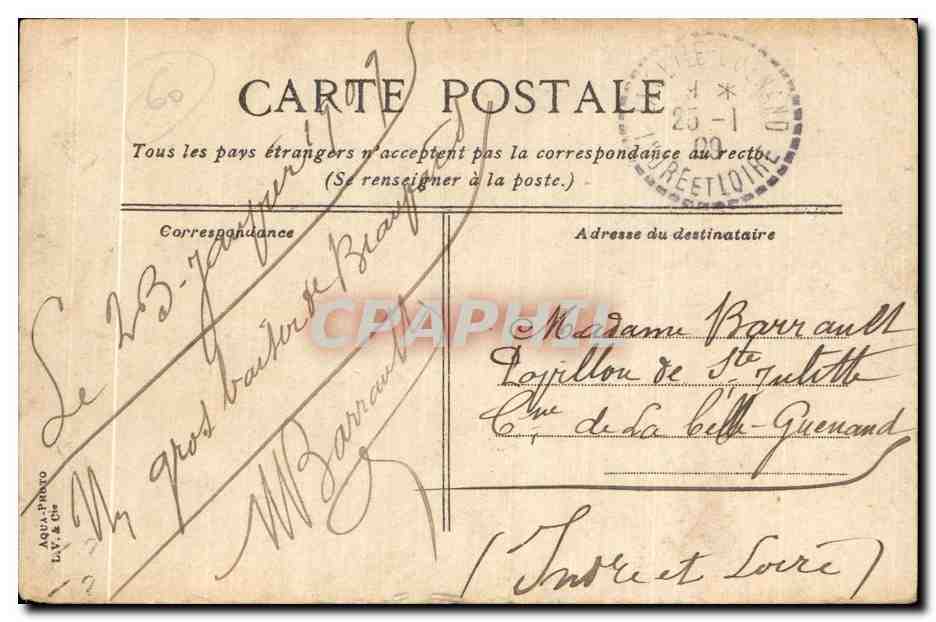 60
CARTE POSTALE
Tous les pays étrangers n'acceptent pas la correspondance au recto:
(Se renseigner à la poste.)
25 -1
09
INDRE ET LOIRE
Correspondance
Adresse du destinataire
Le 23-Janvier 1909
gros baiser de Beaufour
Barrault
CPAPHIL
Madame Barrault
Pavillon de Ste Juliette
Cne de La Celle-Guenand
(Indre et Loire)
AQUA-PHOTO
L.V. & Cie